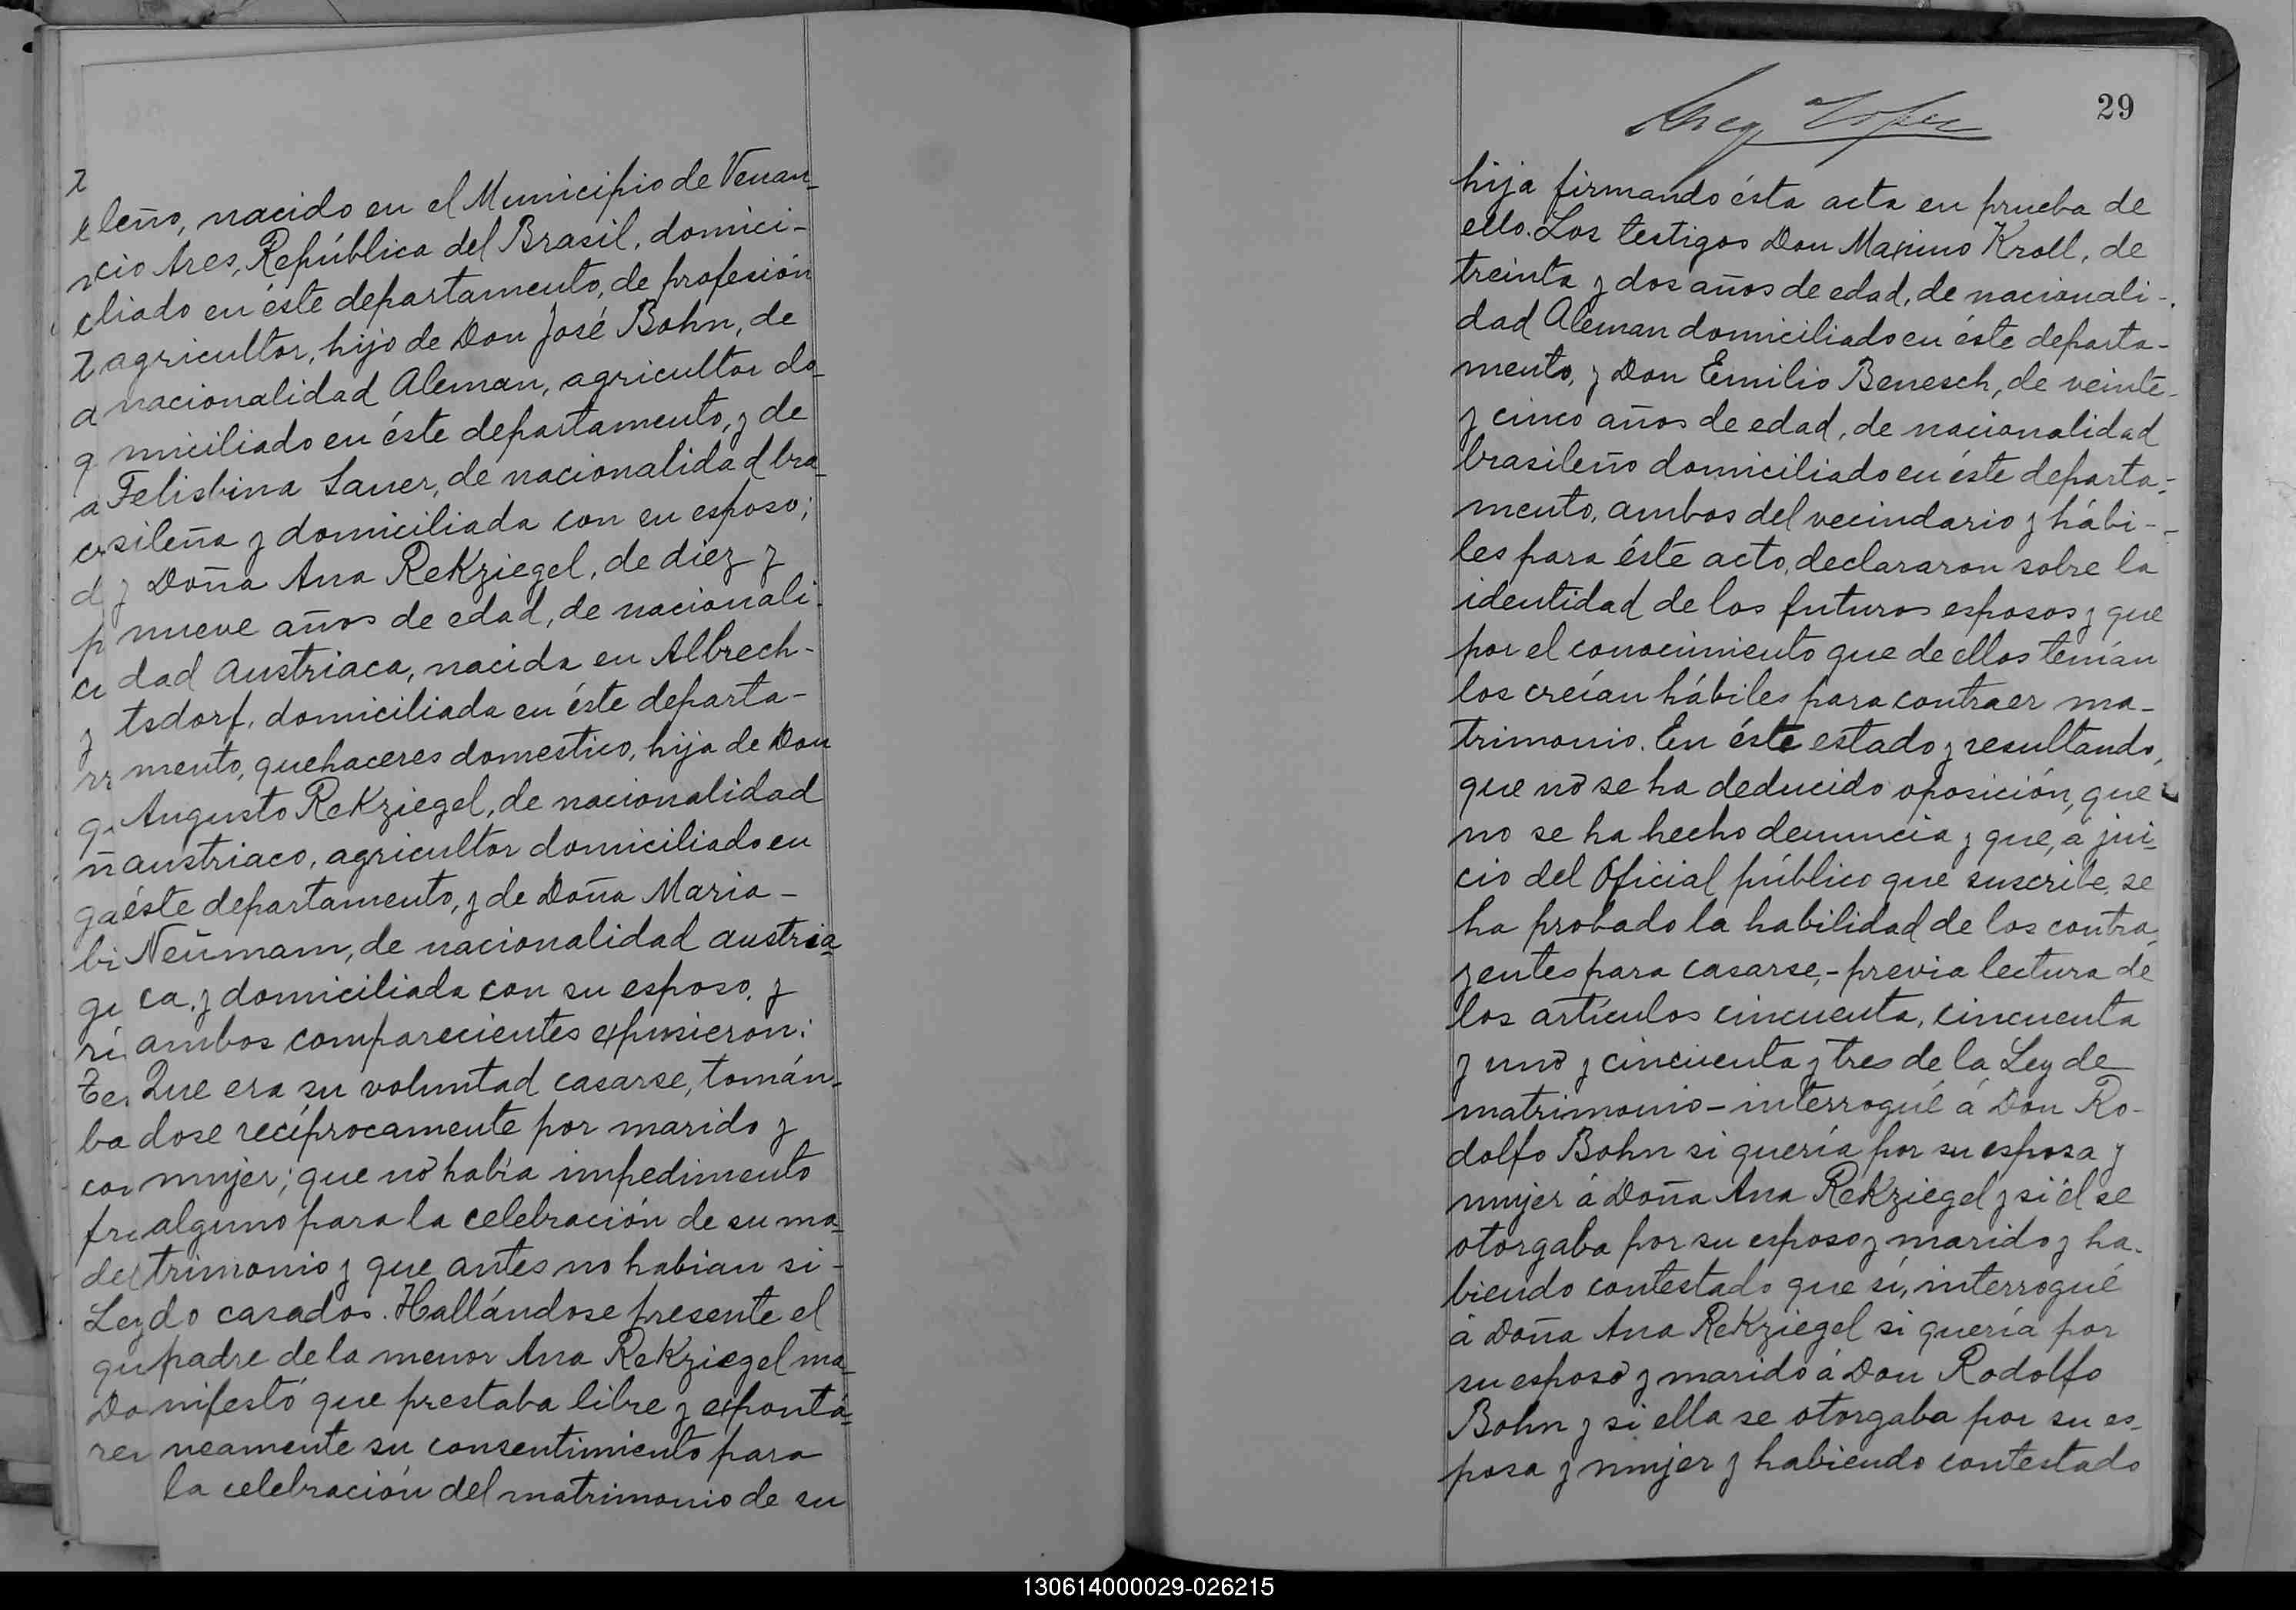 leño, nacido en el Municipio de Venan-
cio Ares, República del Brasil, domici-
liado en éste departamento, de profesión
agricultor, hijo de Don José Bohn, de
nacionalidad Aleman, agricultor do-
miciliado en éste departamento, y de
Felisbina Sauer, de nacionalidad bra-
sileña y domiciliada con su esposo;
y Doña Ana Rekziegel, de diez y
nueve años de edad, de nacionali-
dad austriaca, nacida en Albrech-
tsdorf, domiciliada en éste departa-
mento, quehaceres domestico, hija de Don
Augusto Rekziegel, de nacionalidad
austriaco, agricultor domiciliado en
éste departamento, y de Doña Maria-
Neümann, de nacionalidad austria-
ca, y domiciliada con su esposo, y
ambos comparecientes expusieron:
Que era su voluntad casarse, tomán-
dose recíprocamente por marido y
mujer; que no había impedimento
alguno para la celebración de su ma-
trimonio y que antes no habian si-
do casados. Hallándose presente el
padre de la menor Ana Rekziegel ma-
nifestó que prestaba libre y espontá-
neamente su consentimiento para
la celebración del matrimonio de su
29
hija firmando ésta acta en prueba de
ello. Los testigos Don Maximo Kroll, de
treinta y dos años de edad, de nacionali-
dad Aleman domiciliado en éste departa-
mento, y Don Emilio Benesch, de veinte-
y cinco años de edad, de nacionalidad
brasileño domiciliado en éste departa-
mento, ambos del vecindario y hábi-
les para éste acto, declararon sobre la
identidad de los futuros esposos y que
por el conocimiento que de ellos tenían
los creían hábiles para contraer ma-
trimonio. En éste estado y resultando,
que no se ha deducido oposición, que
no se ha hecho denuncia y que, á jui-
cio del Oficial público que suscribe, se
ha probado la habilidad de los contra-
yentes para casarse,- previa lectura de
los artículos cincuenta, cincuenta
y uno y cincuenta y tres de la Ley de
matrimonio - interrogué á Don Ro-
dolfo Bohn si quería por su esposa y
mujer á Doña Ana Rekziegel y si él se
otorgaba por su esposo y marido y ha-
biendo contestado que sí, interrogué
á Doña Ana Rekziegel si quería por
su esposo y marido á Don Rodolfo
Bohn y si ella se otorgaba por su es-
posa y mujer y habiendo contestado
130614000029-026215